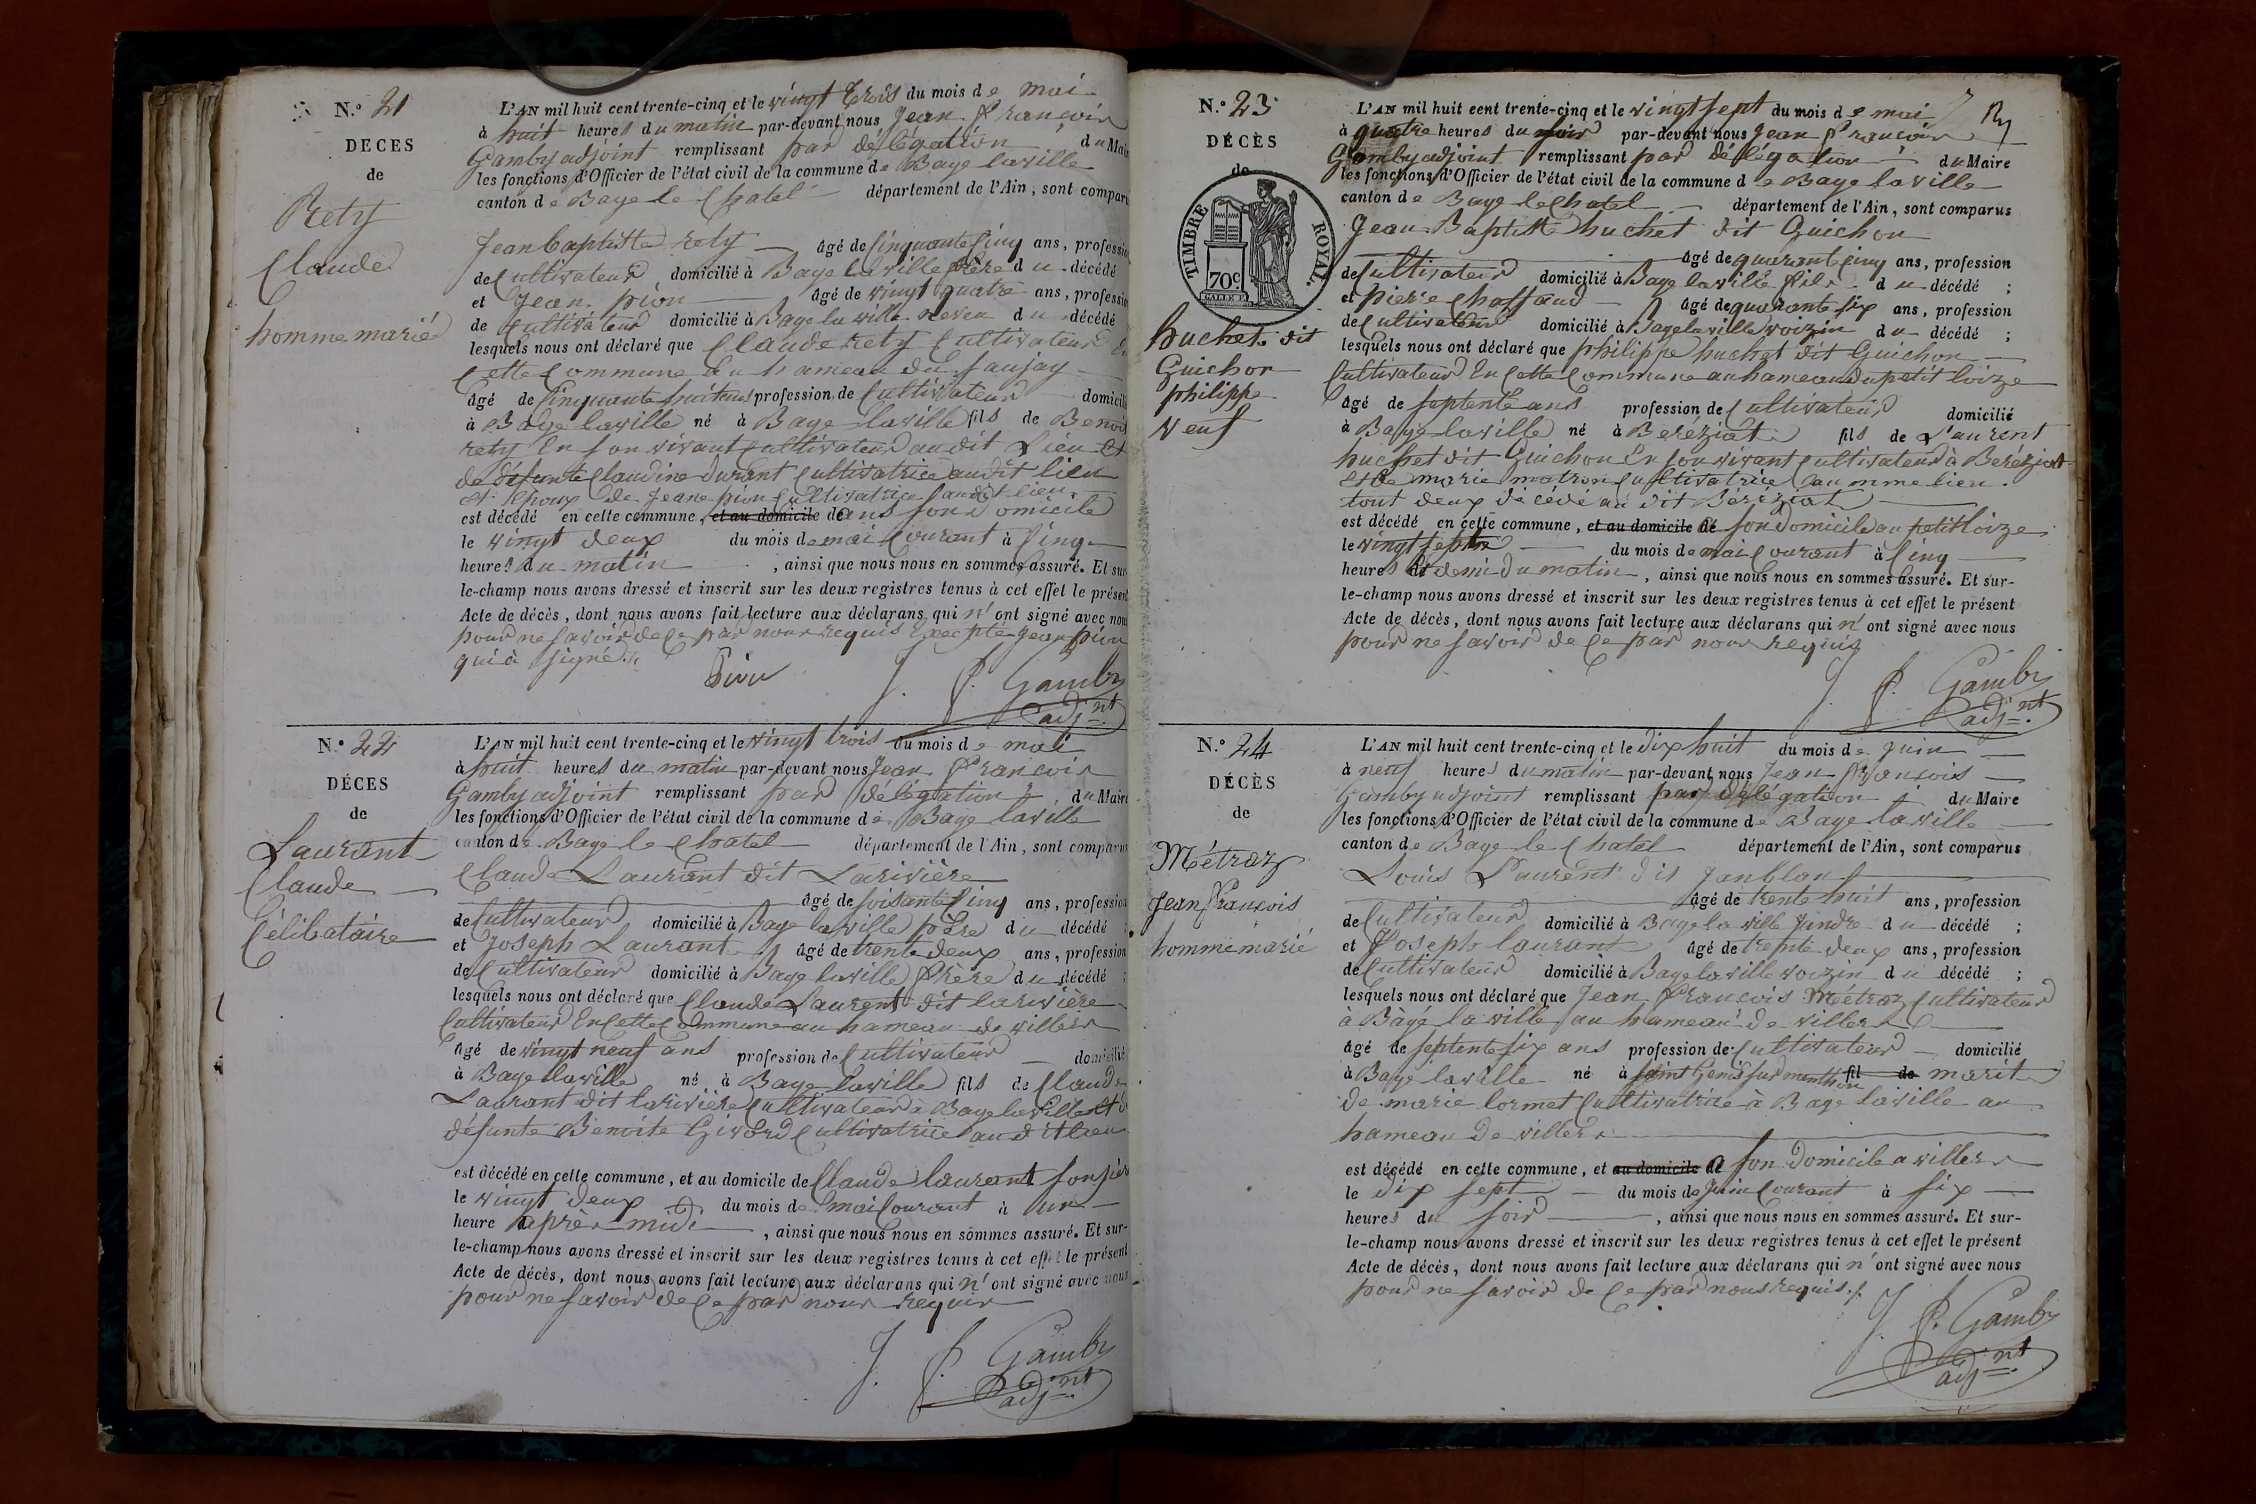 N.° 21
DECES
de
Rety
Claude
homme marié
L'AN mil huit cent trente-cinq et le vingt trois du mois de mai
à huit heures du matin par-devant nous Jean François
Gamby adjoint remplissant par délégation du Maire
les fonctions d'Officier de l'état civil de la commune de Bage laville
canton de Bage le Chatel département de l'Ain, sont comparu
Jean baptiste réty âgé de cinquante cinq ans, profession
de Cultivateur domicilié à Bage la ville frère du décédé
et Jean pion âgé de vingt quatre ans, profession
de Cultivateur domicilié à Bage la ville neveu du décédé
lesquels nous ont déclaré que Claude rety Cultivateur En
Cette Commune au hameau du saujay
âgé de Cinquante huit ans profession de Cultivateur domicilié
à Bage laville né à Bage laville fils de Benoit
rety En son vivant Cultivateur au dit Lieu Et
de défunte Claudine Durant Cultivatrice audit lieu
Et Epoux de Jeane pion Cultivatrice audit lieu
est décédé en cette commune, et au domicile de dans son Domicile
le vingt deux du mois de mai Courant à Cinq
heures du matin, ainsi que nous nous en sommes assuré. Et sur-
le-champ nous avons dressé et inscrit sur les deux registres tenus à cet effet le présent
Acte de décès, dont nous avons fait lecture aux déclarans qui n' ont signé avec nous
pour ne savoir de ce par nous requis Excepté Jean pion
qui à signé
Pion J. f. Gamby
adjnt
N.° 22
DÉCES
de
Laurant
Claude
Célibataire
L'AN mil huit cent trente-cinq et le vingt trois du mois de mai
à huit heures du matin par-devant nous Jean François
Gamby adjoint remplissant par délégation du Maire
les fonctions d'Officier de l'état civil de la commune de Bage laville
canton de Bage le Chatel département de l'Ain, sont comparus
Claude Laurant dit Larivière
âgé de soisante cinq ans, profession
de Cultivateur domicilié à Bage la ville père du décédé ;
et Joseph Laurant âgé de trente deux ans, profession
de Cultivateur domicilié à Bage laville frère du décédé ;
lesquels nous ont déclaré que Claude Laurent dit larivière
Cultivateur En Cette Commune au hameau de villers
âgé de vingt neuf ans profession de Cultivateur domicilié
à Bage laville né à Bage laville fils de Claude
Laurant dit larivière Cultivateur à Bage laville Et de
défunte Benoite Givord Cultivatrice au dit lieu
est décédé en cette commune, et au domicile de Claude laurant son père
le vingt deux du mois de mai Courant à une
heure après midi, ainsi que nous nous en sommes assuré. Et sur-
le-champ nous avons dressé et inscrit sur les deux registres tenus à cet effet le présent
Acte de décès, dont nous avons fait lecture aux déclarans qui n' ont signé avec nous
pour ne savoir de ce par nous requis
J. f. Gamby
adjnt
N.° 23
DÉCÈS
de
TIMBRE ROYAL.
70c
huchet dit
Guichon
philippe
veuf
L'AN mil huit cent trente-cinq et le vingt sept du mois de mai
à quatre heures du soir par-devant nous Jean François
Gamby adjoint remplissant par délégation du Maire
les fonctions d'Officier de l'état civil de la commune de Bage laville
canton de Bage le Chatel département de l'Ain, sont comparus
Jean Baptiste huchet dit Guichon
âgé de quarante cinq ans, profession
de Cultivateur domicilié à Bage laville fils du décédé ;
et pierre Chaffaud âgé de quarante six ans, profession
de Cultivateur domicilié à Bage laville voizin du décédé ;
lesquels nous ont déclaré que philippe huchet dit Guichon
Cultivateur En Cette Commune au hameau du petit loize
âgé de septente ans profession de Cultivateur domicilié
à Bage laville né à Beréziat fils de Laurent
huchet dit Guichon En son vivant Cultivateur à Beréziat
et de marie matron Cultivatrice au mme lieu
tout deux décédé au dit Béréziat
est décédé en cette commune, et au domicile de son Domicile au petit loize
le vingt sept du mois de mai Courant à Cinq
heures et demi du matin, ainsi que nous nous en sommes assuré. Et sur-
le-champ nous avons dressé et inscrit sur les deux registres tenus à cet effet le présent
Acte de décès, dont nous avons fait lecture aux déclarans qui n' ont signé avec nous
pour ne savoir de ce par nous requis
J. f. Gamby
adjnt
N.° 24
DÉCÈS
de
Métraz
Jean François
homme marié
L'AN mil huit cent trente-cinq et le dix huit du mois de Juin
à neuf heures du matin par-devant nous Jean François
Gamby adjoint remplissant par délégation du Maire
les fonctions d'Officier de l'état civil de la commune de Bage la ville
canton de Bage le Chatel département de l'Ain, sont comparus
Louis Laurent dit Janblan
âgé de trente huit ans, profession
de Cultivateur domicilié à Bage la ville Jendre du décédé ;
et Joseph laurant âgé de trente deux ans, profession
de Cultivateur domicilié à Bage laville voizin du décédé ;
lesquels nous ont déclaré que Jean François Métraz Cultivateur
à Bagé la ville au hameau de villers
âgé de septente six ans profession de Cultivateur domicilié
à Bage laville né à saint Genis sur menthon fil de marit
de marie lormet Cultivatrice à Bage laville au
hameau de villers
est décédé en cette commune, et au domicile de a son Domicile a villers
le dix sept du mois de Juin Courant à six
heures du soir, ainsi que nous nous en sommes assuré. Et sur-
le-champ nous avons dressé et inscrit sur les deux registres tenus à cet effet le présent
Acte de décès, dont nous avons fait lecture aux déclarans qui n' ont signé avec nous
pour ne savoir de ce par nous requis
J. f. Gamby
adjnt